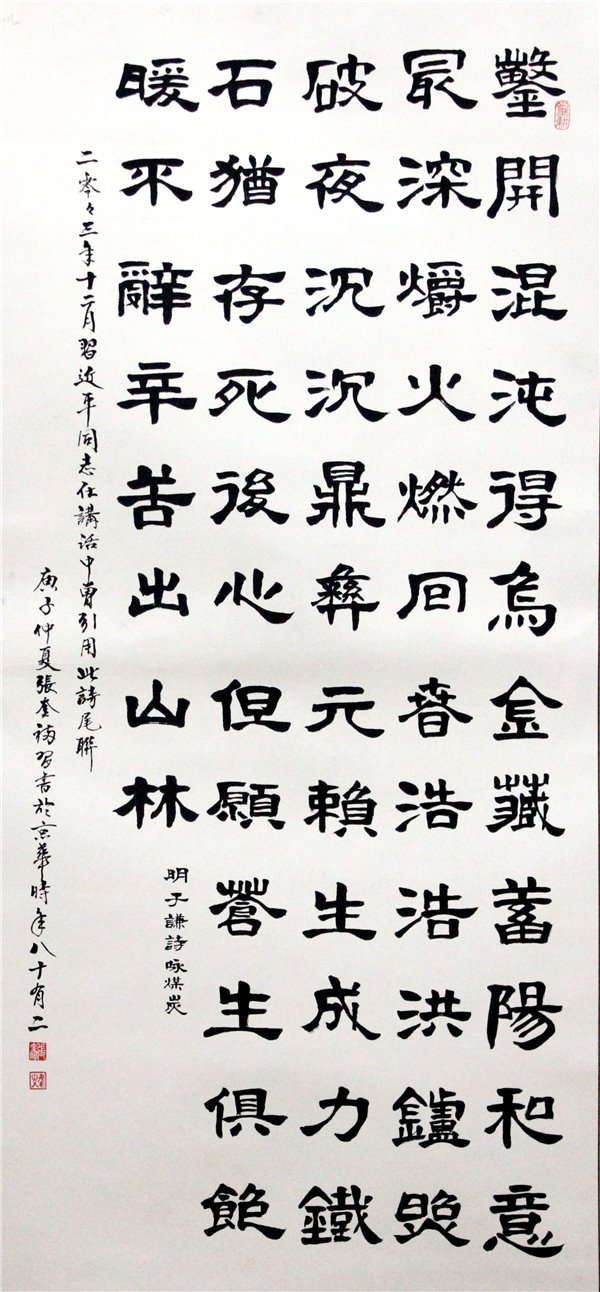 鑿開混沌得烏金藏蓄陽和意
最深爝火燃回春浩浩洪鑪照
破夜沉沉鼎彝元賴生成力鐵
石猶存死後心但願蒼生俱飽
暖不辭辛苦出山林
明于謙詩咏煤炭
二零々三年十二月習近平同志在講話中曾引用此詩尾聯
庚子仲夏張奎習書於京華時年八十有二